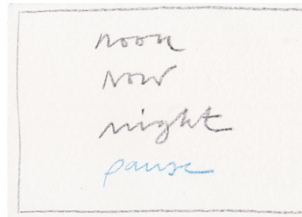 noon
now
night
pause